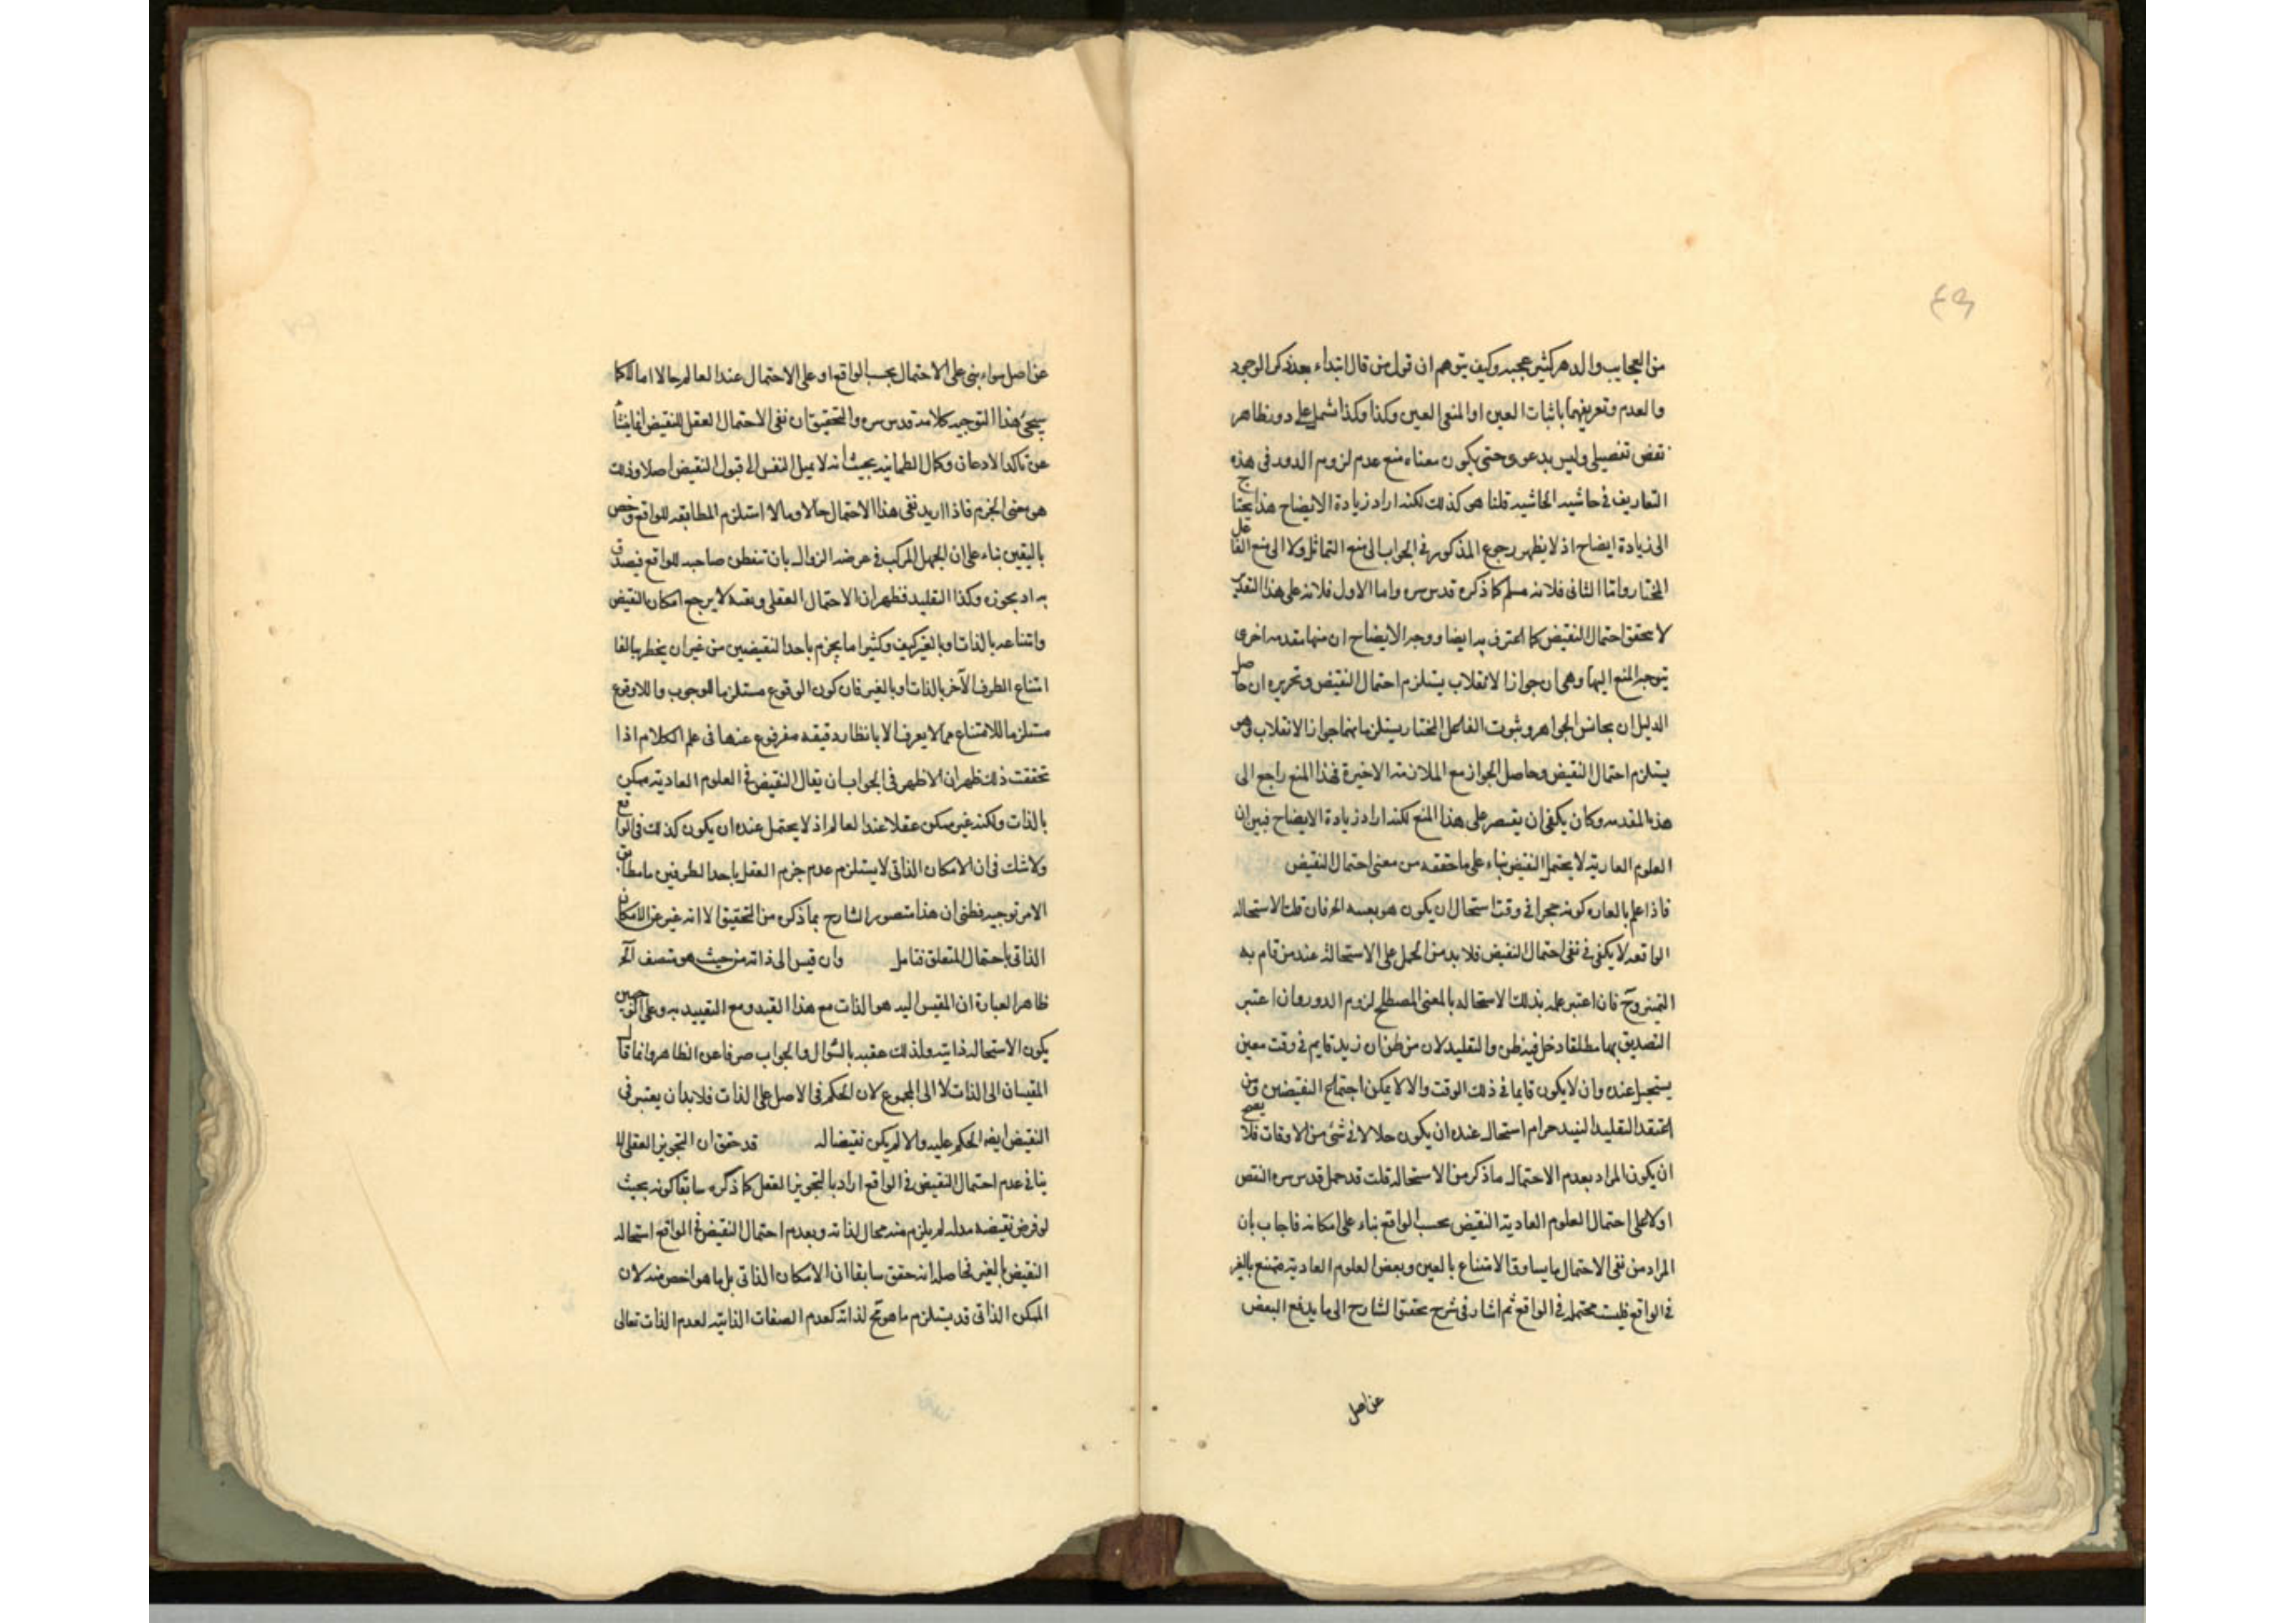 من العجايب والدهر كثير عجيبه وكيف يتوهم ان قول من قال ابتداء بعد ذكر الوجود
والعدم وتعريفهما باثبات العين او المنفى العين وكذا وكذا شمل على دور ظاهر
نقض تفصيلى وليس بدعوى حتى يكون معناه منع عدم لزوم الدور فى هذه
التعاريف فى حاشيه الحاشيه قلنا هو كذلك لكنه اراد زيادة الايضاح هذا يحتاج
الى زيادة ايضاح اذ لا يظهر رجوع المذكور فى الجواب الى منع التماثل ولا الى منع الفاعل
المختار واما الثانى فلانه مسلم كما ذكره قدس سره واما الاول فلانه على هذا التقدير
لا يحقق احتمال النقيض كما اعترف به ايضا ووجه الايضاح ان منها مقدمه اخرى
يتوجه المنع اليها وهى ان جواز الانقلاب يستلزم احتمال النقيض وتحريره ان حاصل
الدليل ان تجانس الجواهر وثبوت الفاعل المختار يستلزمانهما جواز الانقلاب وهو
يستلزم احتمال النقيض وحاصل الجواز مع الملازمة الاخيرة فهذا المنع راجع الى
هذه المقدمه وكان يكفى ان يقتصر على هذا المنع لكنه اراد زيادة الايضاح فبين ان
العلوم العادية لا يحتمل النقيض بناء على ما حققه من معنى احتمال النقيض
فاذا علم بالعاده كونه حجرا فى وقت استحال ان يكون هو بعينه الخ فان قلت الاستحاله
الواقعه لا يكفى فى نفى احتمال النقيض فلا بد من الحمل على الاستحالة عند من قام به
التميز وح فان اعتبر علمه بذلك الاستحاله بالمعنى المصطلح لزوم الدور وان اعتبر
التصديق بها مطلقا دخل فيه ظن والتقليد لان من ظن ان زيد قايم فى وقت معين
يستحيل عنده وان لا يكون قايما فى ذلك الوقت والا لا يمكن اجتماع النقيضين ومن
اعتقد التقليد النبيذ حرام استحال عنده ان يكون حلالا فى شئ من الاوقات فلا يصح
ان يكون المراد بعدم الاحتمال ما ذكر من الاستحاله قلت قد حمل قدس سره النقض
اولا على احتمال العلوم العادية النقيض بحسب الواقع بناء على امكانه فاجاب بان
المراد من نفى الاحتمال ما يساوق الامتناع بالعين وبعض العلوم العادية ممتنع بالغير
فى الواقع فليست محتمله فى الواقع ثم اشار فى شرح تحقيق الشارح الى ما يدفع البعض
عن اصل
عن اصل سواء بنى على الاحتمال بحسب الواقع او على الاحتمال عند العالم حالا اما لا كما
يجئ هذا التوجيه كلامه قدس سره والتحقيق ان نفى الاحتمال العقلى للنقيض انما ينشأ
عن تاكد الاذعان وكمال الطمانيه بحيث انه لا يميل النفس الى قبول النقيض اصلا وذلك
هو معنى الجزم فاذا اريد نفى هذا الاحتمال حالا ومالا استلزم المطابقه للواقع وخص
باليقين بناء على ان الجهل المركب فى عرضه الزوال بان تفطن صاحبه للواقع فيصدق
به او يجوزه وكذا التقليد فظهر ان الاحتمال العقلى ونفيه لا يرجع امكان النقيض
وامتناعه بالذات او بالغير كيف وكثيرا ما يجزم باحد النقيضين من غير ان يخطر بباله
امتناع الطرف الآخر بالذات او بالغير فان كون الوقوع مستلزما للوجوب واللاوقوع
مستلزما للامتناع مما لا يعرف الا بانظار دقيقه مفروغ عنها فى علم الكلام اذا
تحققت ذلك ظهر ان الاظهر فى الجواب ان يقال النقيض فى العلوم العادية ممكن
بالذات ولكنه غير ممكن عقلا عند العالم اذ لا يحتمل عنده ان يكون كذلك فى الواقع
ولا شك فى ان الامكان الذاتى لا يستلزم عدم جزم العقل باحد الطرفين ما مطابق
الامر توجيه فظنى ان هذا متصور الشارح بما ذكره من التحقيق الا انه عبر عن الامكان
الذاتى باحتمال المتعلق فتامل وان قيس الى ذاته من حيث هو متصف الخ
ظاهر العبارة ان المقيس اليه هو الذات مع هذا القيد ومع التقييد به وعلى الوجهين
يكون الاستحاله ذاتية ولذلك عقبه بالسؤال والجواب صرفا عن الظاهر وانما قال
المقيسان الى الذات لا الى المجموع لان الحكم فى الاصل على الذات فلا بد ان يعتبر فى
النقيض ايضا الحكم عليه والا لم يكن نقيضا له قد حقق ان التجويز العقلى لا
ينافى عدم احتمال النقيض فى الواقع اراد بالتجويز العقل كما ذكره سابقا كونه بحيث
لو فرض نقيضه بدله لم يلزم منه محال لذاته وبعدم احتمال النقيض فى الواقع استحاله
النقيض بالغير فحاصله انه حقق سابقا ان الامكان الذاتى بل ما هو اخص منه لان
الممكن الذاتى قد يستلزم ما هو مح لذاته كعدم الصفات الذاتية لعدم الذات تعالى